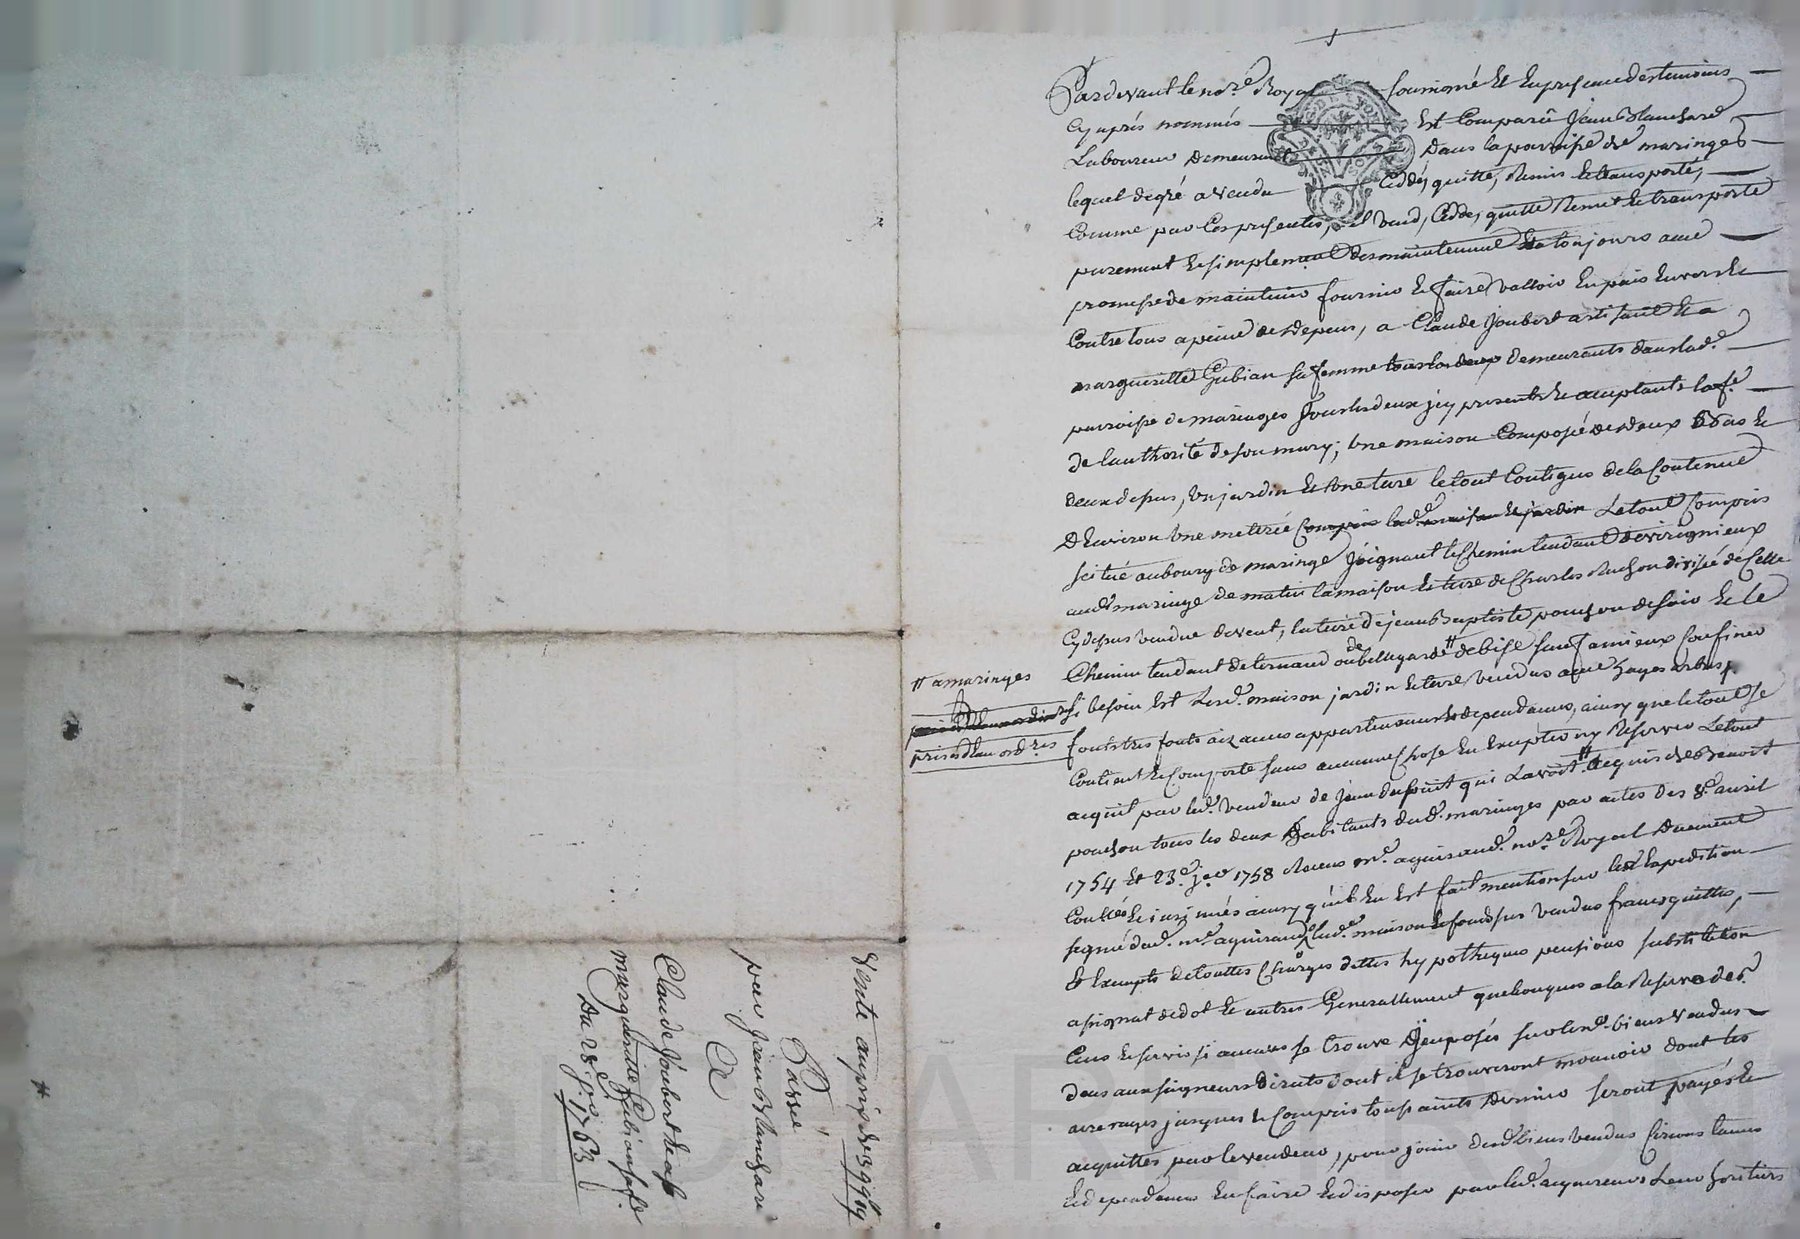 Pardevant le no.re Royal soussigné et en presence des temoins
cy après nommés est comparû Jean Blanchard
Laboureur demeurant dans la parroisse de maringes
lequel de gré a vendu ceddé, quitté, remis et transporté,
comme par ces presentes, il vend, cedde, quitte remet et transporte
purement et simplement des maintenant et a toujours avec
promesse de maintenir fournir et faire valloir en paix envers et
contre tous a peine de depens, a Claude Joubert artisant et a
margueritte Gubian sa femme demeurants dans lad.e
parroisse de maringes tous les deux icy presents et acceptants lad. fe
de l'authorité de son mary; une maison composée de deux bas et
deux dessus, un jardin et une terre le tout contigus de la contenue
d'environ une metterée compris lad.e maison et jardin Le tout compris
scitué au bourg de maringe joignant le chemin tendant de virignieux
aud.t maringe de matin la maison et terre de Charles Ruchon divisée de celle
cy dessus vendue de vent, la terre de jean baptiste ponchon de soir et le
Chemin tendant de ternand ou de bellegarde # de bise sauf a mieux confiner
# a maringes
si besoin est Lesd. maison jardin et terre vendus avec hayes arbres
pris d'eau ord.res
fruits tres fonts aizances appartenances et dependances, ainsy que le tout se
contient et comporte sans aucune chose en exeption ny reserver Le tout
acquit par led. vendeur de jean dupuit qui l'avoit acquis de Benoit
ponchon tous les deux habitants dud. maringes par actes des 8.e avril
1754 et 23.e j.er 1758 recus m.e aguiraud. no.re Royal duement
conttés et insinués ainsy qu'il en est fait mention sur les expedition
signé dud. m.e aguiraud, lad.e maison et fonds sus vendus francs quittes,
et exempts de touttes charges dettes hypotheques pensions substitution
assignat de dot et autres generallement quelconques a la reserve des
cens et servis si aucuns se trouve imposés sur lesd. biens vendus
deus aux seigneurs directs dont il se trouveront mouvoir dont les
arrerages jusques et compris toussaints dernier seront payés et
acquittés par le vendeur, pour jouir desd. biens vendus circonstances
et dependances en faire et disposer par led. acquereurs Leurs heritiers
Vente au prix de 399ᵗᵗ 19ˢ
Passée
par Jean Blanchard
A
Claude Joubert et a
margueritte Gubian sa fe.
Du 28.e j.er 1763